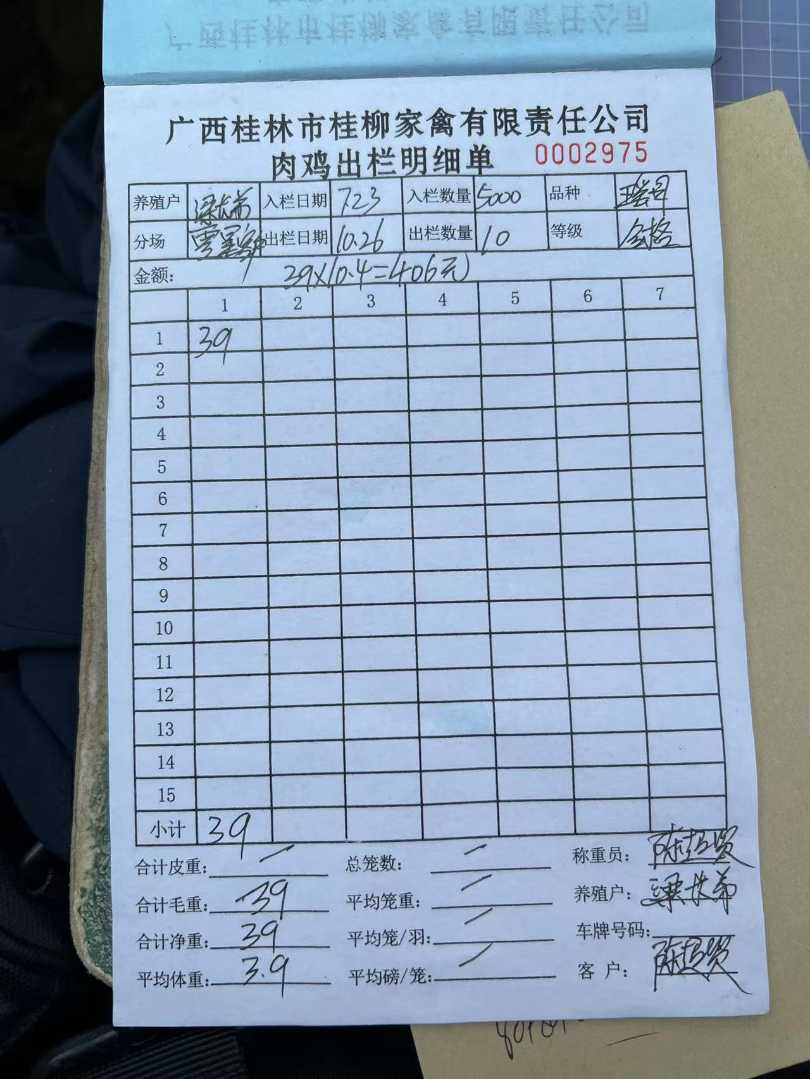 广西桂林市桂柳家禽有限责任公司
肉鸡出栏明细单 0002975
养殖户 入栏日期 7.23 入栏数量 5000 品种
分场 出栏日期 10.26 出栏数量 10 等级 合格
金额: 39×10.4=406元
1 2 3 4 5 6 7
1 39
2
3
4
5
6
7
8
9
10
11
12
13
14
15
小计 39
合计皮重: / 总笼数: / 称重员:
合计毛重: 39 平均笼重: / 养殖户:
合计净重: 39 平均笼/羽: / 车牌号码:
平均体重: 3.9 平均磅/笼: / 客 户: